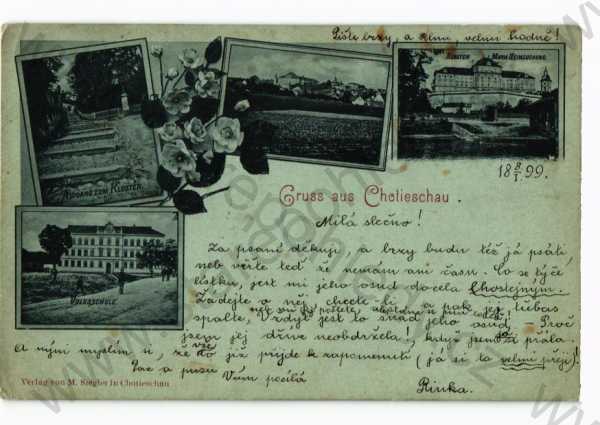 Pište brzy, a ‎elmi, velmi hodně!
KLOSTER MARIA HEIMSUCHUNG
AUFGANG ZUM KLOSTER
18 8/I. 99.
Gruss aus Chotieschau.
Milá slečno!
VOLKSSCHULE
Za psaní děkuji, a brzy budu též já psáti,
neb věřte teď že nemám ani času. Co se týče
lístku, jest mi jeho osud docela lhostejným.
Žádejte o něj chcete-li a pak jej třebas
spalte, vždyť jest to snad jeho osud. Proč
jsem jej dříve neobdržela, když jsem o to psala.
A nyní myslím si, že to vše již přijde k zapomenutí (já si to velmi přeji)!
Pac a pusu Vám posílá
Rinka.
Verlag von M. Siegler in Chotieschau